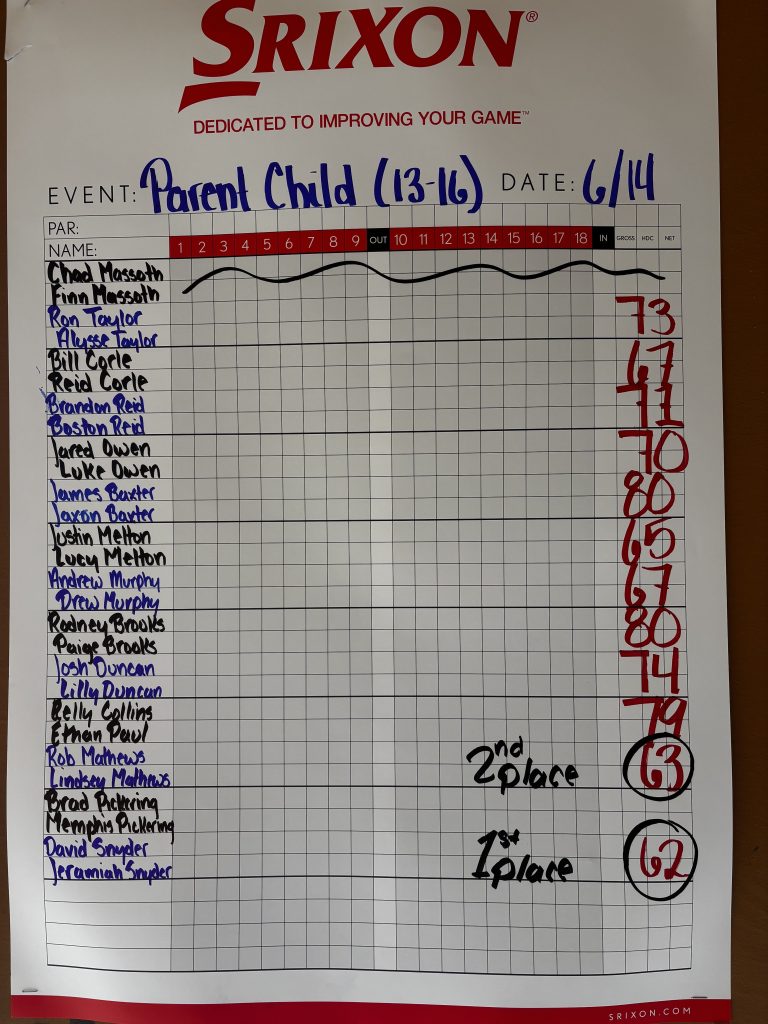 SRIXON®
DEDICATED TO IMPROVING YOUR GAME™
EVENT: Parent Child (13-16) DATE: 6/14
PAR:
NAME: 1 2 3 4 5 6 7 8 9 OUT 10 11 12 13 14 15 16 17 18 IN GROSS HDC NET
Chad Massoth
Finn Massoth
Ron Taylor 73
Alysse Taylor
Bill Corle 67
Reid Corle
Brandon Reid 71
Boston Reid
Jared Owen 70
Luke Owen
James Baxter 80
Jaxon Baxter
Justin Melton 65
Lucy Melton
Andrew Murphy 67
Drew Murphy
Rodney Brooks 80
Paige Brooks
Josh Duncan 74
Lilly Duncan
Kelly Collins 79
Ethan Paul
Rob Mathews 2nd place 63
Lindsey Mathews
Brad Pickering
Memphis Pickering
David Snyder 1st place 62
Jeramiah Snyder
SRIXON.COM